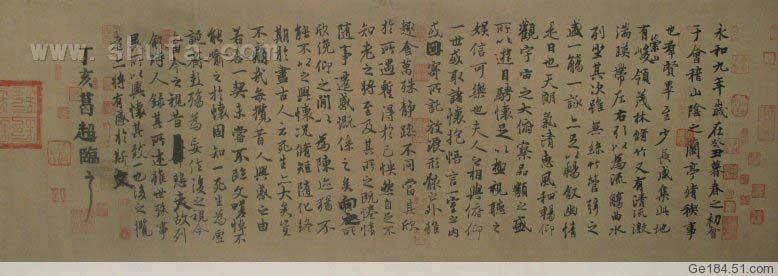 永和九年歲在癸丑暮春之初會
于會稽山陰之蘭亭脩稧事
也羣賢畢至少長咸集此地
有崇山峻領茂林脩竹又有清流激
湍暎帶左右引以為流觴曲水
列坐其次雖無絲竹管弦之
盛一觴一詠亦足以暢敘幽情
是日也天朗氣清惠風和暢仰
觀宇宙之大俯察品類之盛
所以遊目騁懷足以極視聽之
娛信可樂也夫人之相與俯仰
一世或取諸懷抱悟言一室之內
或因寄所託放浪形骸之外雖
趣舍萬殊靜躁不同當其欣
於所遇蹔得於己怏然自足不
知老之將至及其所之既惓情
隨事遷感慨係之矣向之所
欣俛仰之間以為陳迹猶不
能不以之興懷況脩短隨化終
期於盡古人云死生亦大矣豈
不痛哉每攬昔人興感之由
若合一契未嘗不臨文嗟悼不
能喻之於懷固知一死生為虛
誕齊彭殤為妄作後之視今
亦由今之視昔悲夫故列
敘時人錄其所述雖世殊事
異所以興懷其致一也後之攬
者亦將有感於斯文
丁亥葛超臨
shufa.com
Ge184.51.com